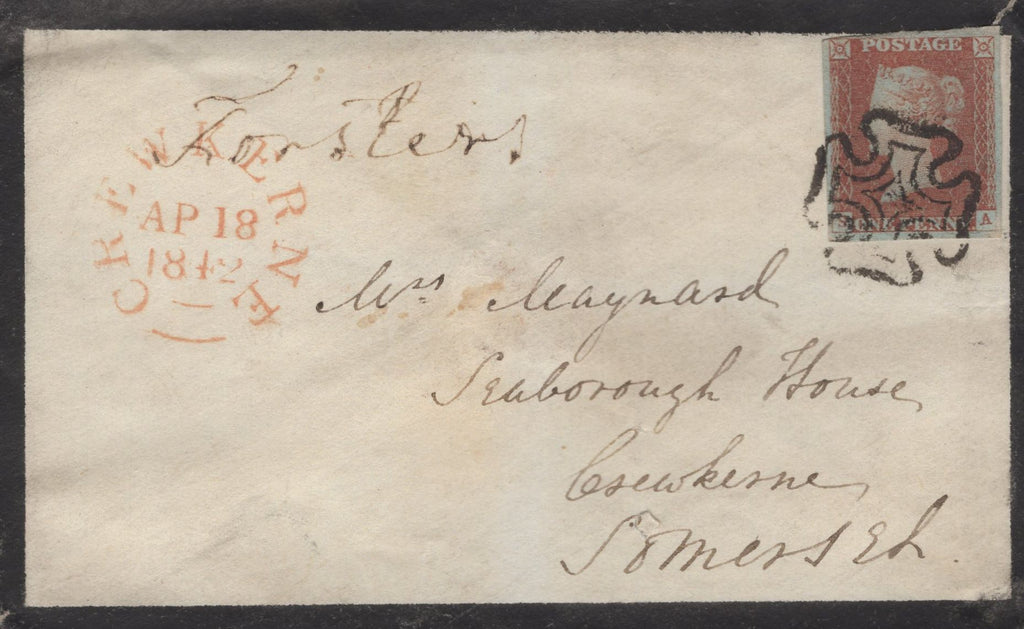 POSTAGE
Forsters
CREWKERNE
AP 18
1842
ONE PENNY
A
Mrs Maynard
Seaborough House
Crewkerne
Somerset.